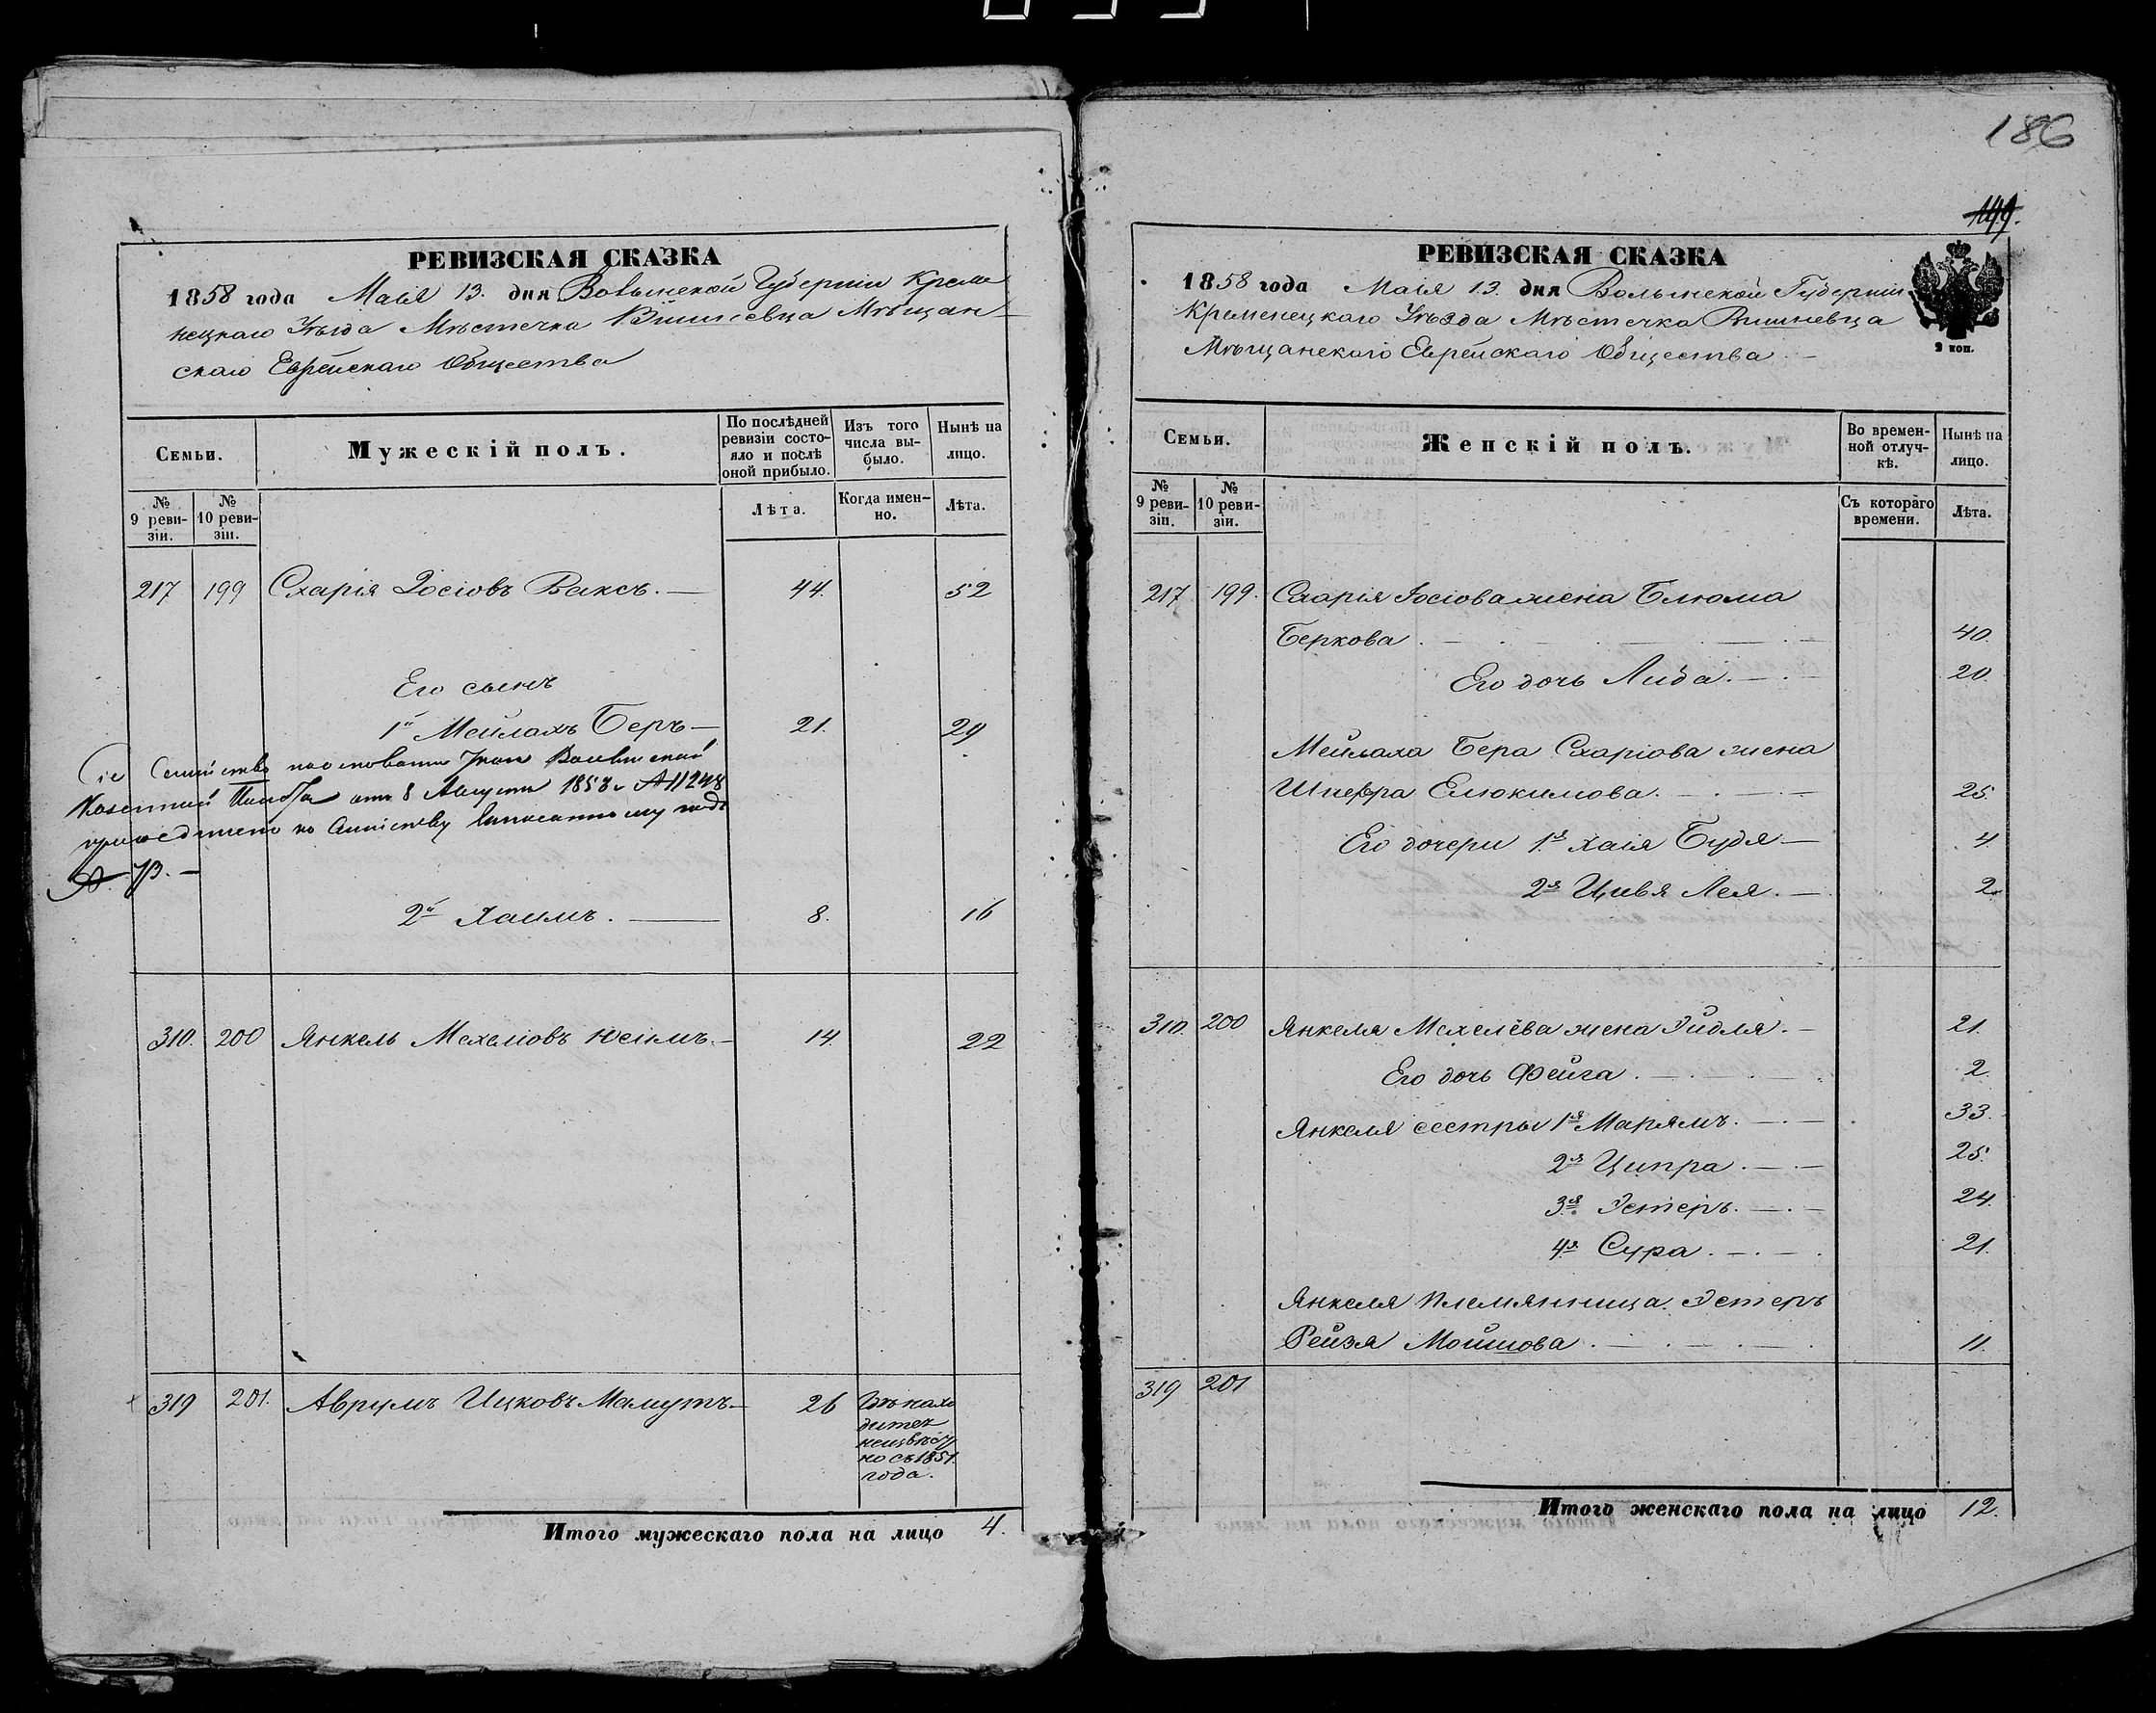 186
149.
РЕВИЗСКАЯ СКАЗКА
1858 года Маія 13. дня Волынской Губерніи Креме
нецкаго Уѣзда Мѣстечка Вишневца Мѣщан
скаго Еврейскаго Общества
Семьи.
Мужескій полъ.
По послѣдней ревизіи состояло и послѣ оной прибыло.
Изъ того числа выбыло.
Нынѣ на лицо.
№ 9 ревизіи.
№ 10 ревизіи.
Лѣта.
Когда именно.
Лѣта.
217 199 Схарія Іосіовъ Ваксъ. 44. 52
Его сынъ
1й Мейлахъ Беръ 21. 29
Сіе Семейство на основаніи Указа Волынской
Казенной Палаты отъ 8 Августа 1858 г №11248
присоединено къ Семейству записанному подъ
№ 73.
2й Хаимъ. 8. 16
310. 200 Янкель Мехеліовъ 14. 22
319 201. Аврумъ Ицковъ Мамутъ 26 Гдѣ нахо
дится
неизвѣст
но съ 1851.
года.
Итого мужескаго пола на лицо 4.
РЕВИЗСКАЯ СКАЗКА
1858 года Маія 13. дня Волынской Губерніи
Кременецкаго Уѣзда Мѣстечка Вишневца
Мѣщанскаго Еврейскаго Общества
2 коп.
Семьи.
Женскій полъ.
Во временной отлучкѣ.
Нынѣ на лицо.
№ 9 ревизіи.
№ 10 ревизіи.
Съ котораго времени.
Лѣта.
217 199. Схарія Іосіова жена Блюма
Беркова 40.
Его дочь Лида. 20.
Мейлаха Бера Схаріова жена
Шпефра Елюкимова. 25.
Его дочери 1я Хаія Будя 4
2я Цивя Лея. 2.
310. 200 Янкеля Мехелёва жена Эйдля. 21.
Его дочь Фейга. 2.
Янкеля сестры 1я Марямъ. 33.
2я Ципра. 25.
3я Эстеръ. 24.
4я Сура. 21.
Янкеля племянница Эстеръ
Рейзя Мойшова. 11.
319 201
Итого женскаго пола на лицо 12.